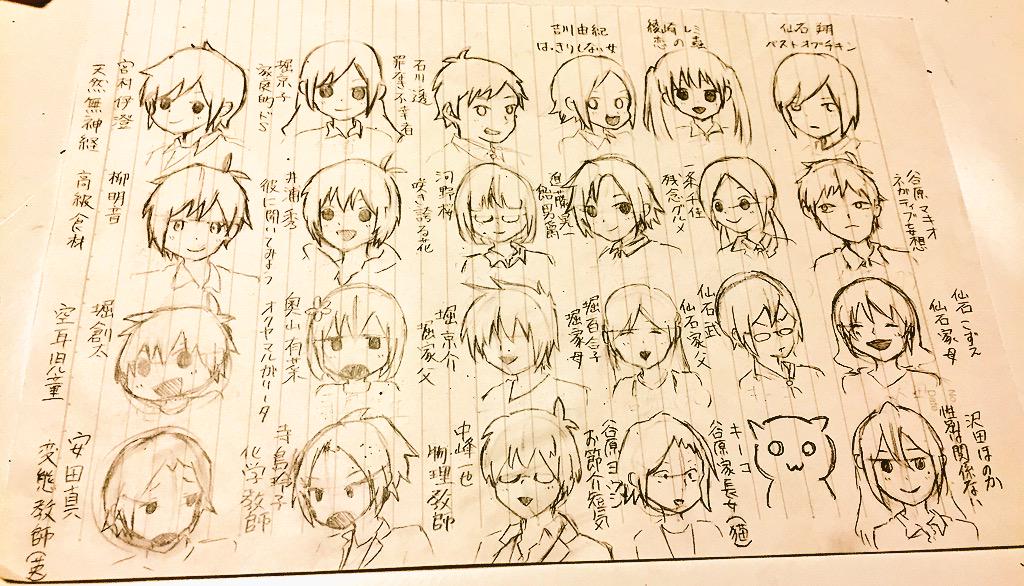 宮村伊澄
天然無神経
堀京子
家庭的ドS
石川透
吉川由紀
はっきりしない女
綾崎レミ
仙石翔
ベストオブチキン
柳明音
高級食材
井浦秀
彼に聞いてみよう
河野桜
咲き誇る花
進藤晃一
残念グルメ
谷原マキオ
ネガティブ妄想
堀創太
空耳児童
奥山有菜
オクヤマルガリータ
堀京介
堀家父
堀百合子
堀家母
仙石武
仙石家父
仙石こずえ
仙石家母
安田真
変態教師(英)
寺島玲子
化学教師
中峰一也
物理教師
お節介短気
キーコ
谷原家長女(猫)
沢田ほのか
性別は関係ない